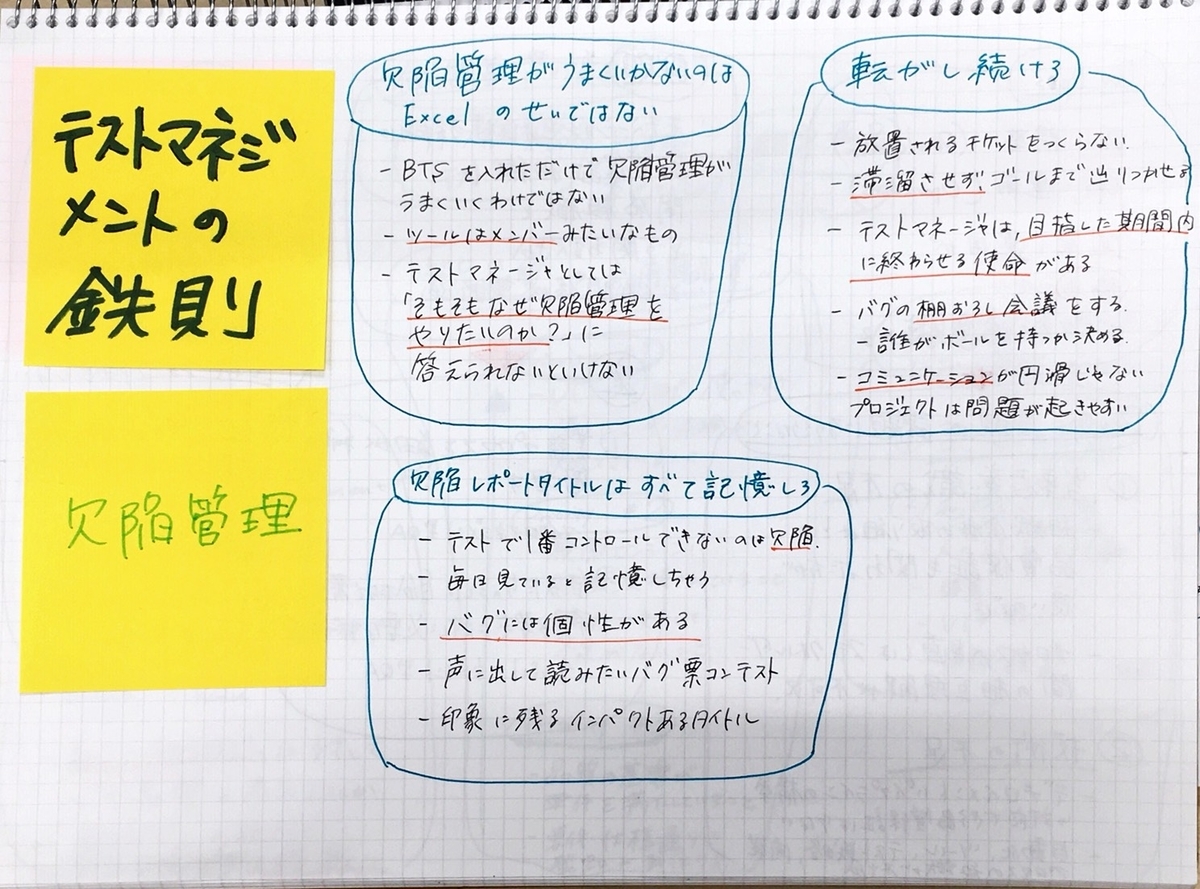 テストマネジ
メントの
鉄則
欠陥管理
欠陥管理がうまくいかないのは
Excel のせいではない
- BTS を入れただけで欠陥管理が
うまくいくわけではない
- ツールはメンバーみたいなもの
- テストマネージャとしては
「そもそもなぜ欠陥管理を
やりたいのか？」に
答えられないといけない
転がし続けろ
- 放置されるチケットをつくらない.
- 滞留させず、ゴールまで辿りつかせる
- テストマネージャは, 目指した期間内
に終わらせる使命がある
- バグの棚おろし会議をする.
- 誰がボールを持つか決める.
- コミュニケーションが円滑じゃない
プロジェクトは問題が起きやすい
欠陥レポートタイトルはすべて記憶しろ
- テストで1番コントロールできないのは欠陥.
- 毎日見ていると記憶しちゃう
- バグには個性がある
- 声に出して読みたいバグ票コンテスト
- 印象に残るインパクトあるタイトル